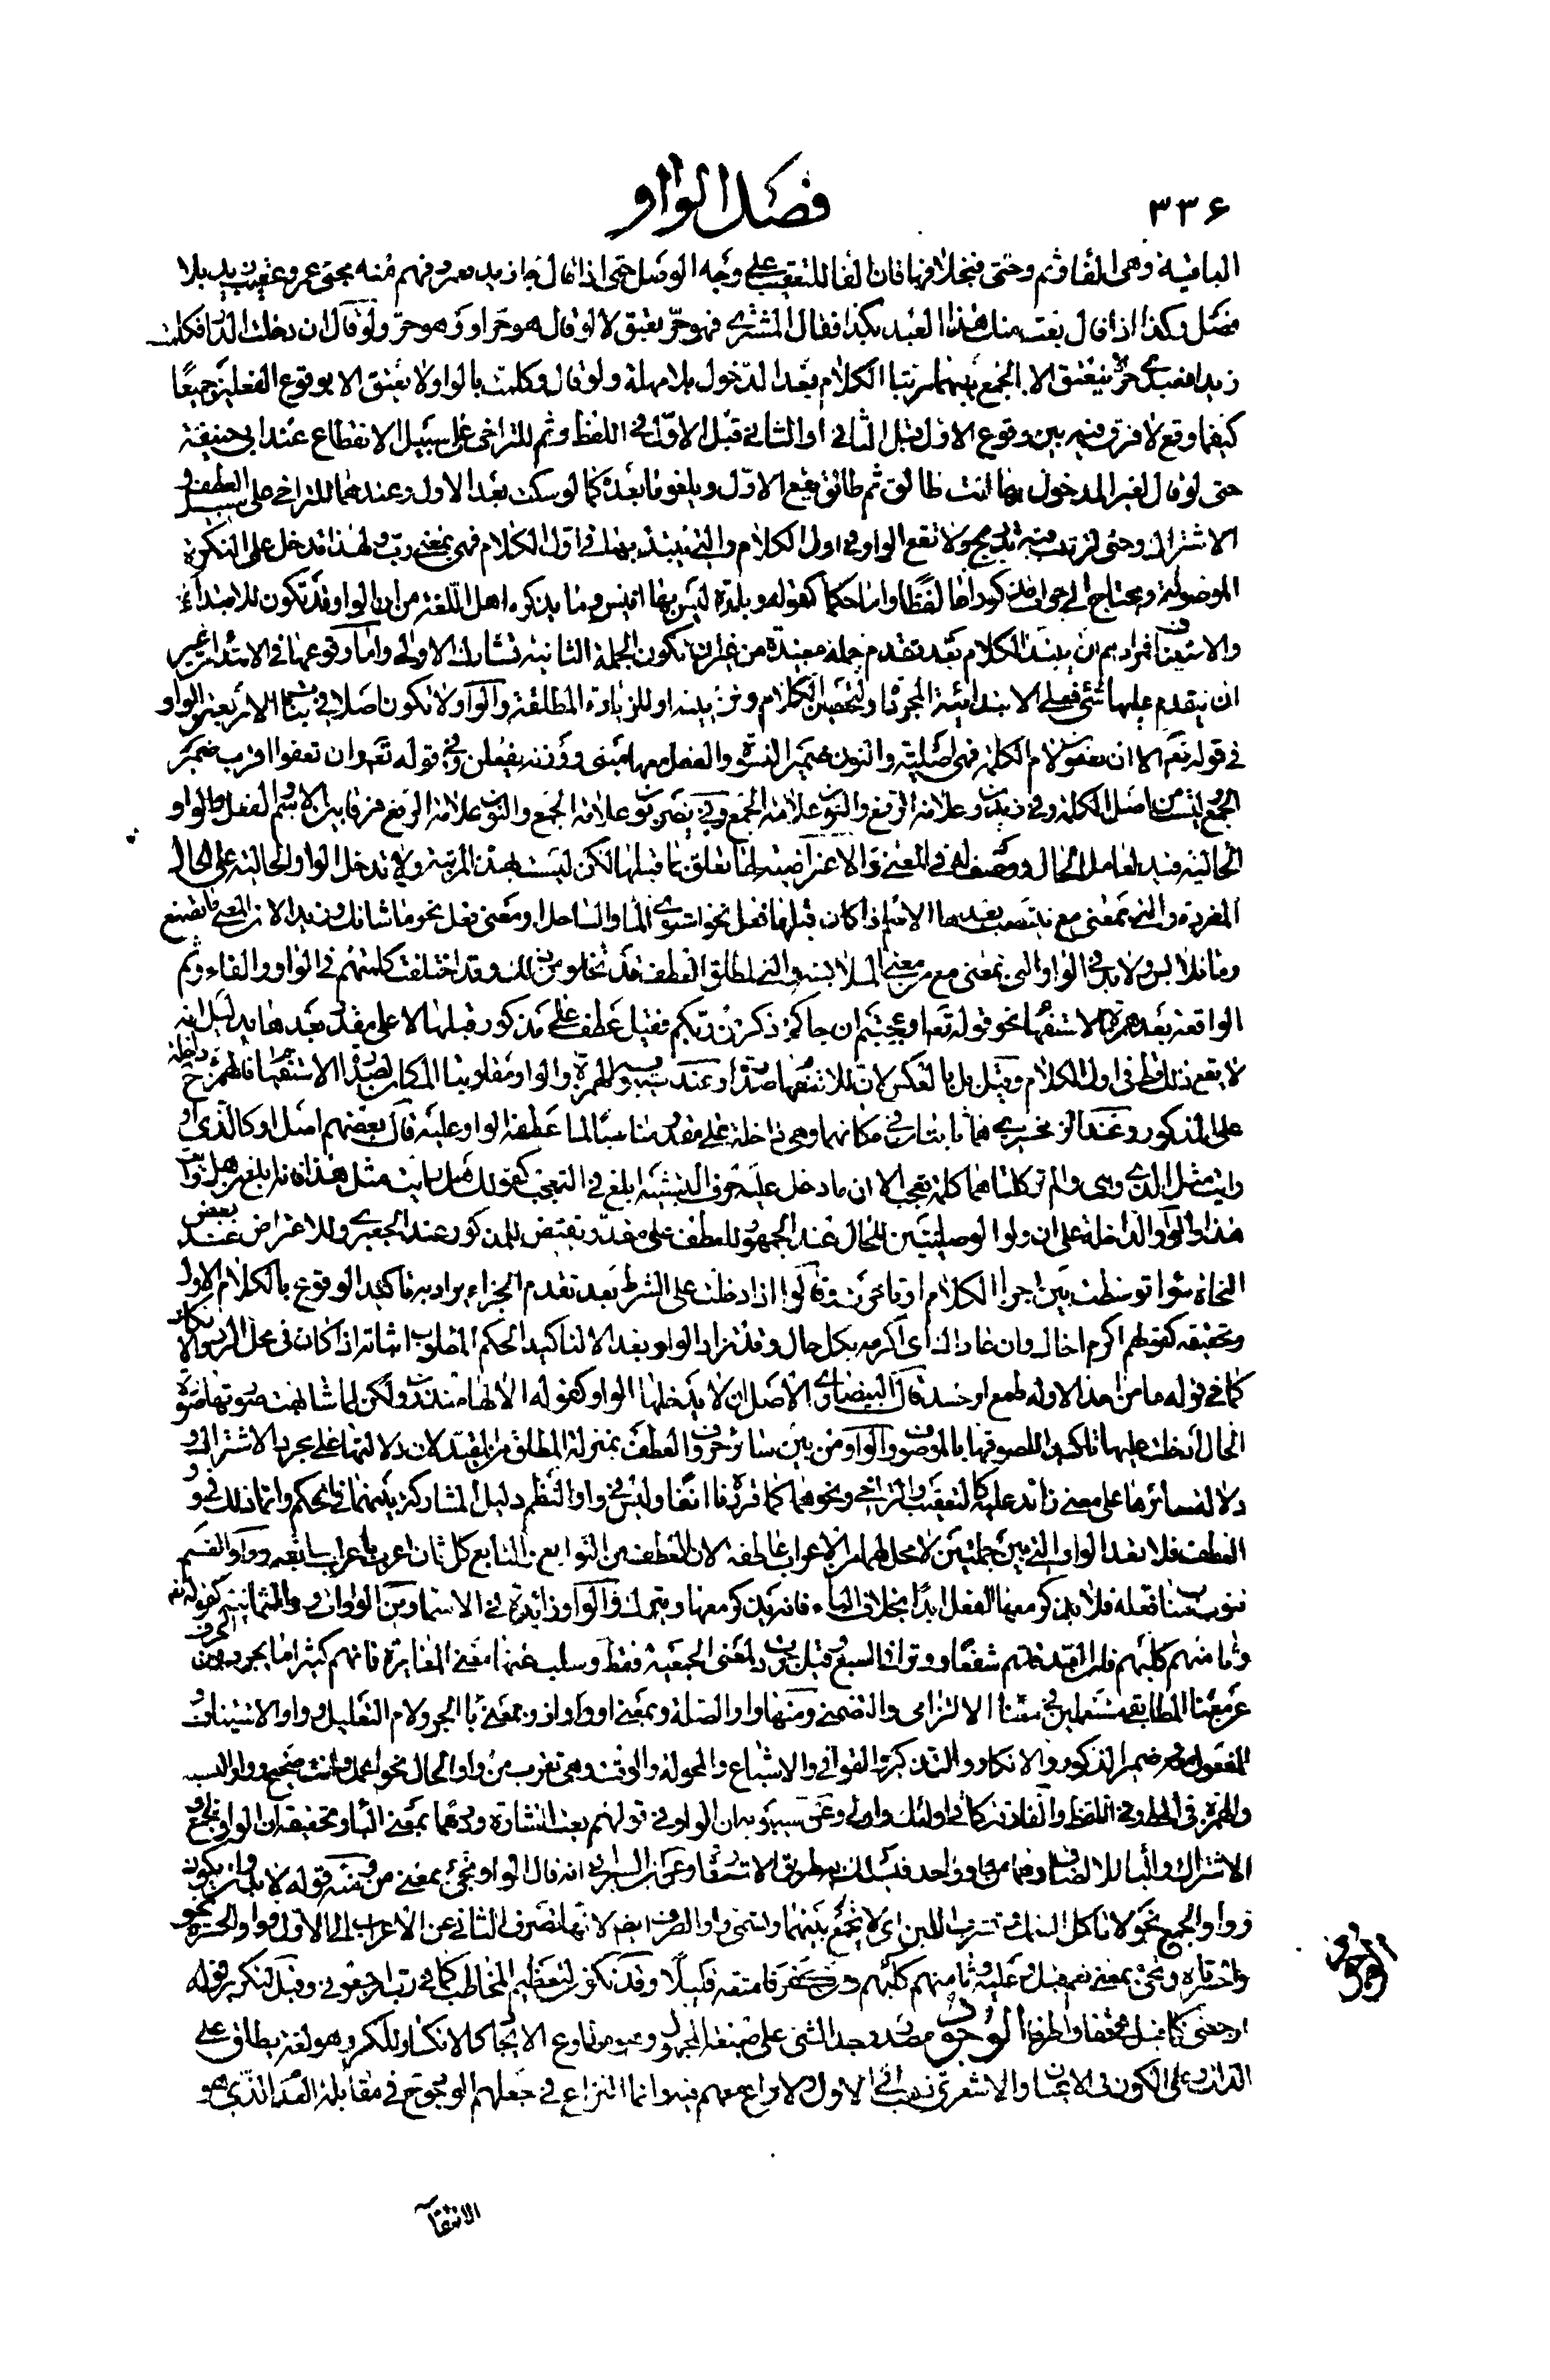 ٣٣۶
فصل الواو
الباقية وهى الفاء وثم وحتى فبخلافها فان الفا للتعقيب على وجه الوصل حتى اذا قال جا زيد فعمرو فهم منه مجئ عمرو عقيب زيد بلا
فصل وكذا اذا قال بعت منك هذا العبد بكذا فقال المشترى فهو حر يعتق لا لو قال هو حر او وهو حر ولو قال ان دخلت الدار فكلمت
زيدا فعبدى حر لا يعتق الا بالجمع بينهما مرتبا الكلام بعد الدخول بلا مهلة ولو قال وكلمت بالواو لا يعتق الا بوقوع الفعلين جميعا
كيفما وقع لا فرق فيه بين وقوع الاول قبل الثانى او الثانى قبل الاول فى اللفظ وثم للتراخى على سبيل الانقطاع عند ابى حنيفة
حتى لو قال لغير المدخول بها انت طالق ثم طالق يقع الاول ويلغو ما بعده كما لو سكت بعد الاول وعندهما للتراخى على سبيل العطف و
الاشتراك وحتى لترتيب فيه تدريج ولا تقع الواو فى اول الكلام والتى يبتدء بها فى اول الكلام فهى بمعنى رب ولهذا تدخل على النكرة
الموصوفة ويحتاج الى جواب مذكور اما لفظا واما حكما كقوله وبلدة ليس بها انيس وما يذكره اهل اللغة من ان الواو قد تكون للابتداء
والاستيناف فمرادهم ان يبتدأ الكلام بعد تقدم جملة مفيدة من غير ان تكون الجملة الثانية تشارك الاولى واما وقوعها فى الابتداء من غير
ان يتقدم عليها شئ فعلى الابتدائية المجردة او لتحصين الكلام وتزيينه او للزيادة المطلقة والواو لا تكون اصلا فى بنات الاربعة والواو
فى قوله تعم الا ان يعفون لام الكلمة فهى اصلية والنون ضمير النسوة والفعل معها مبنى ووزنه يفعلن وفى قوله تعم وان تعفوا اقرب ضمير
الجمع ليست من اصل الكلمة وفى زيدون علامة الرفع والنون علامة الجمع وفى يضربون علامة الجمع والنون علامة الرفع فرقا بين الاسم والفعل والواو
الحالية قيد لعامل الحال ووصف له فى المعنى والاعتراضية لها تعلق بما قبلها لكن ليست بهذه المرتبة ولا تدخل الواو الحالية على الحال
المفردة والتى بمعنى مع ينتصب بعدها الاسم اذا كان قبلها فعل نحو استوى الما والساحل او معنى فعل نحو ما شانك وزيدا لان المعنى ما تصنع
وما تلابس ولا بد فى الواو التى بمعنى مع من معنى الملابسة والتى لمطلق العطف قد تخلو من ذلك وقد اختلفت كلمتهم فى الواو والفاء وثم
الواقعة بعد همزة الاستفهام نحو قوله تعم اوعجبتم ان جاكم ذكر من ربكم فقيل عطف على مذكور قبلها لا على مقدر بعدها بدليل انه
لا يقع ذلك قط فى اول الكلام وقيل بل بالعكس لان للاستفهام صدرا وعند سيبويه الهمزة والواو مقلوبتا المكان لصدر الاستفهام فالهمزة ح داخلة
على المذكور وعند الزمخشرى هما ثابتتان فى مكانهما وهى داخلة على مقدر مناسب لما عطفه الواو عليه قال بعضهم اصل او كالذى او
رايت مثل الذى وهى والم تر كلتاهما كلمة تعجب الا ان ما دخل عليه حرف التشبيه ابلغ فى التعجب كقولك هل رايت مثل هذا فانه ابلغ من هل رايت
هذا والواو الداخلة على ان ولو الوصليتين للحال عند الجمهور للعطف على مقدر نقيض للمذكور عند الجعبرى وللاعتراض عند بعض
النحاة سواء توسطت بين اجزا الكلام او تاخرت وقالوا اذا دخلت على الشرط بعد تقدم الجزاء يراد به تاكيد الوقوع بالكلام الاول
وتحقيقه كقولهم اكرم اخاك وان عاداك اى اكرمه بكل حال وقد تزاد الواو بعد الا لتاكيد الحكم المطلوب اثباته اذا كان فى محل الرد والانكار
كما فى قوله ما من احد الا وله طمع او حسد قال البيضاوى الاصل ان لا يدخلها الواو كقوله الا لها منذرون ولكن لما شابهت صورتها صورة
الحال ادخلت عليها تاكيدا للصوقها بالموصوف والواو من بين سائر حروف العطف بمنزلة المطلق من المقيد لان دلالتها على مجرد الاشتراك و
دلالة سائرها على معنى زائد عليه كالتعقيب والتراخى ونحوهما كما قررنا انفا وليس فى واو النظم دليل المشاركة بينهما فى الحكم وانما ذلك فى واو
العطف فلا تعد الواو التى بين جملتين لا محل لهما من الاعراب عاطفة لان العطف من التوابع والتابع كل ثان اعرب باعراب سابقه وواو القسم
تنوب مناب فعله فلا يذكر معها الفعل ابدا بخلاف الباء فانه يذكر معها ويترك والواو زائدة فى الاسما ومن الواوات واو الثمانية كقوله تعم
وثامنهم كلبهم
عن معنا المطابقى مستعملين فى معنا الالتزامى والتضمنى ومنها واو الصلة وبمعنى او وواو اذ وبمعنى با الجر ولام التعليل وواو الاستيناف و
المفعول معه وضمير الذكور والانكار والتذكر والقوافى والاشباع والمحولة والوقت وهى تقرب من واو الحال نحو اعمل وانت صحيح وواو النسبة
والهمزة فى الخط وفى اللفظ والفارقة كما فى اولئك واولى وعن سيبويه ان الواو فى قولهم بعت الشاة ودرهما بمعنى البا وتحقيقه ان الواو للجمع و
الاشتراك والبا للالصاق وهما من واد واحد فسلك به طريق الاستعارة وعن السيرافى انه قال الواو تجئ بمعنى من ومنه قوله لا بد وان يكون
وواو الجمع نحو لا تاكل السمك وتشرب اللبن اى لا تجمع بينهما وتسمى واو الصرف ايضم لانها تصرف الثانى عن الاعراب الى الاول وواو الحسرة نحو
واحرقاه وتجئ بمعنى نعم
ارجعنى كما قيل فى قفا واطرقا الوجود مصدر وجد الشئ على صيغة المجهول وهو مطاوع الايجاد كالانكسار للكسر وهو لغة يطلق على
الذات وعلى الكون فى الاعيان والاشعرى ذهب الى الاول ولا نزاع معهم فيه وانما النزاع فى جعلهم الوجود فى مقابلة العدم الذى هو
الوجود
الانتفاء